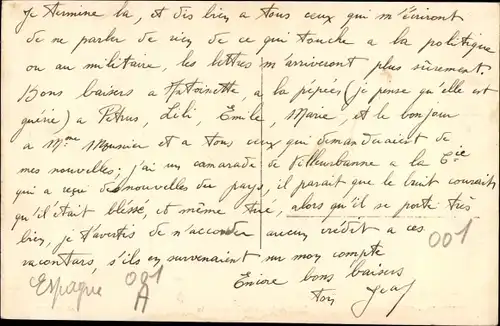 Je termine la, et dis bien a tous ceux qui m'écriront
de ne parler de rien de ce qui touche a la politique
ou au militaire, les lettres m'arriveront plus sûrement.
Bons baisers a Antoinette, a la pépiés (je pense qu'elle est
guérie) a Pétrus, Lili, Émile, Marie, et le bonjour
a Mme Meunier et a tous ceux qui demanderaient de
mes nouvelles; j'ai un camarade de Villeurbanne a la Cie
qui a reçu des nouvelles du pays, il parait que le bruit courait
qu'il était blessé, et même tué, alors qu'il se porte très
bien, je t'avertis de n'accorder aucun crédit a ces
racontars, s'ils en survenaient sur mon compte
Encore bons baisers
ton
001
Espagne 001
A